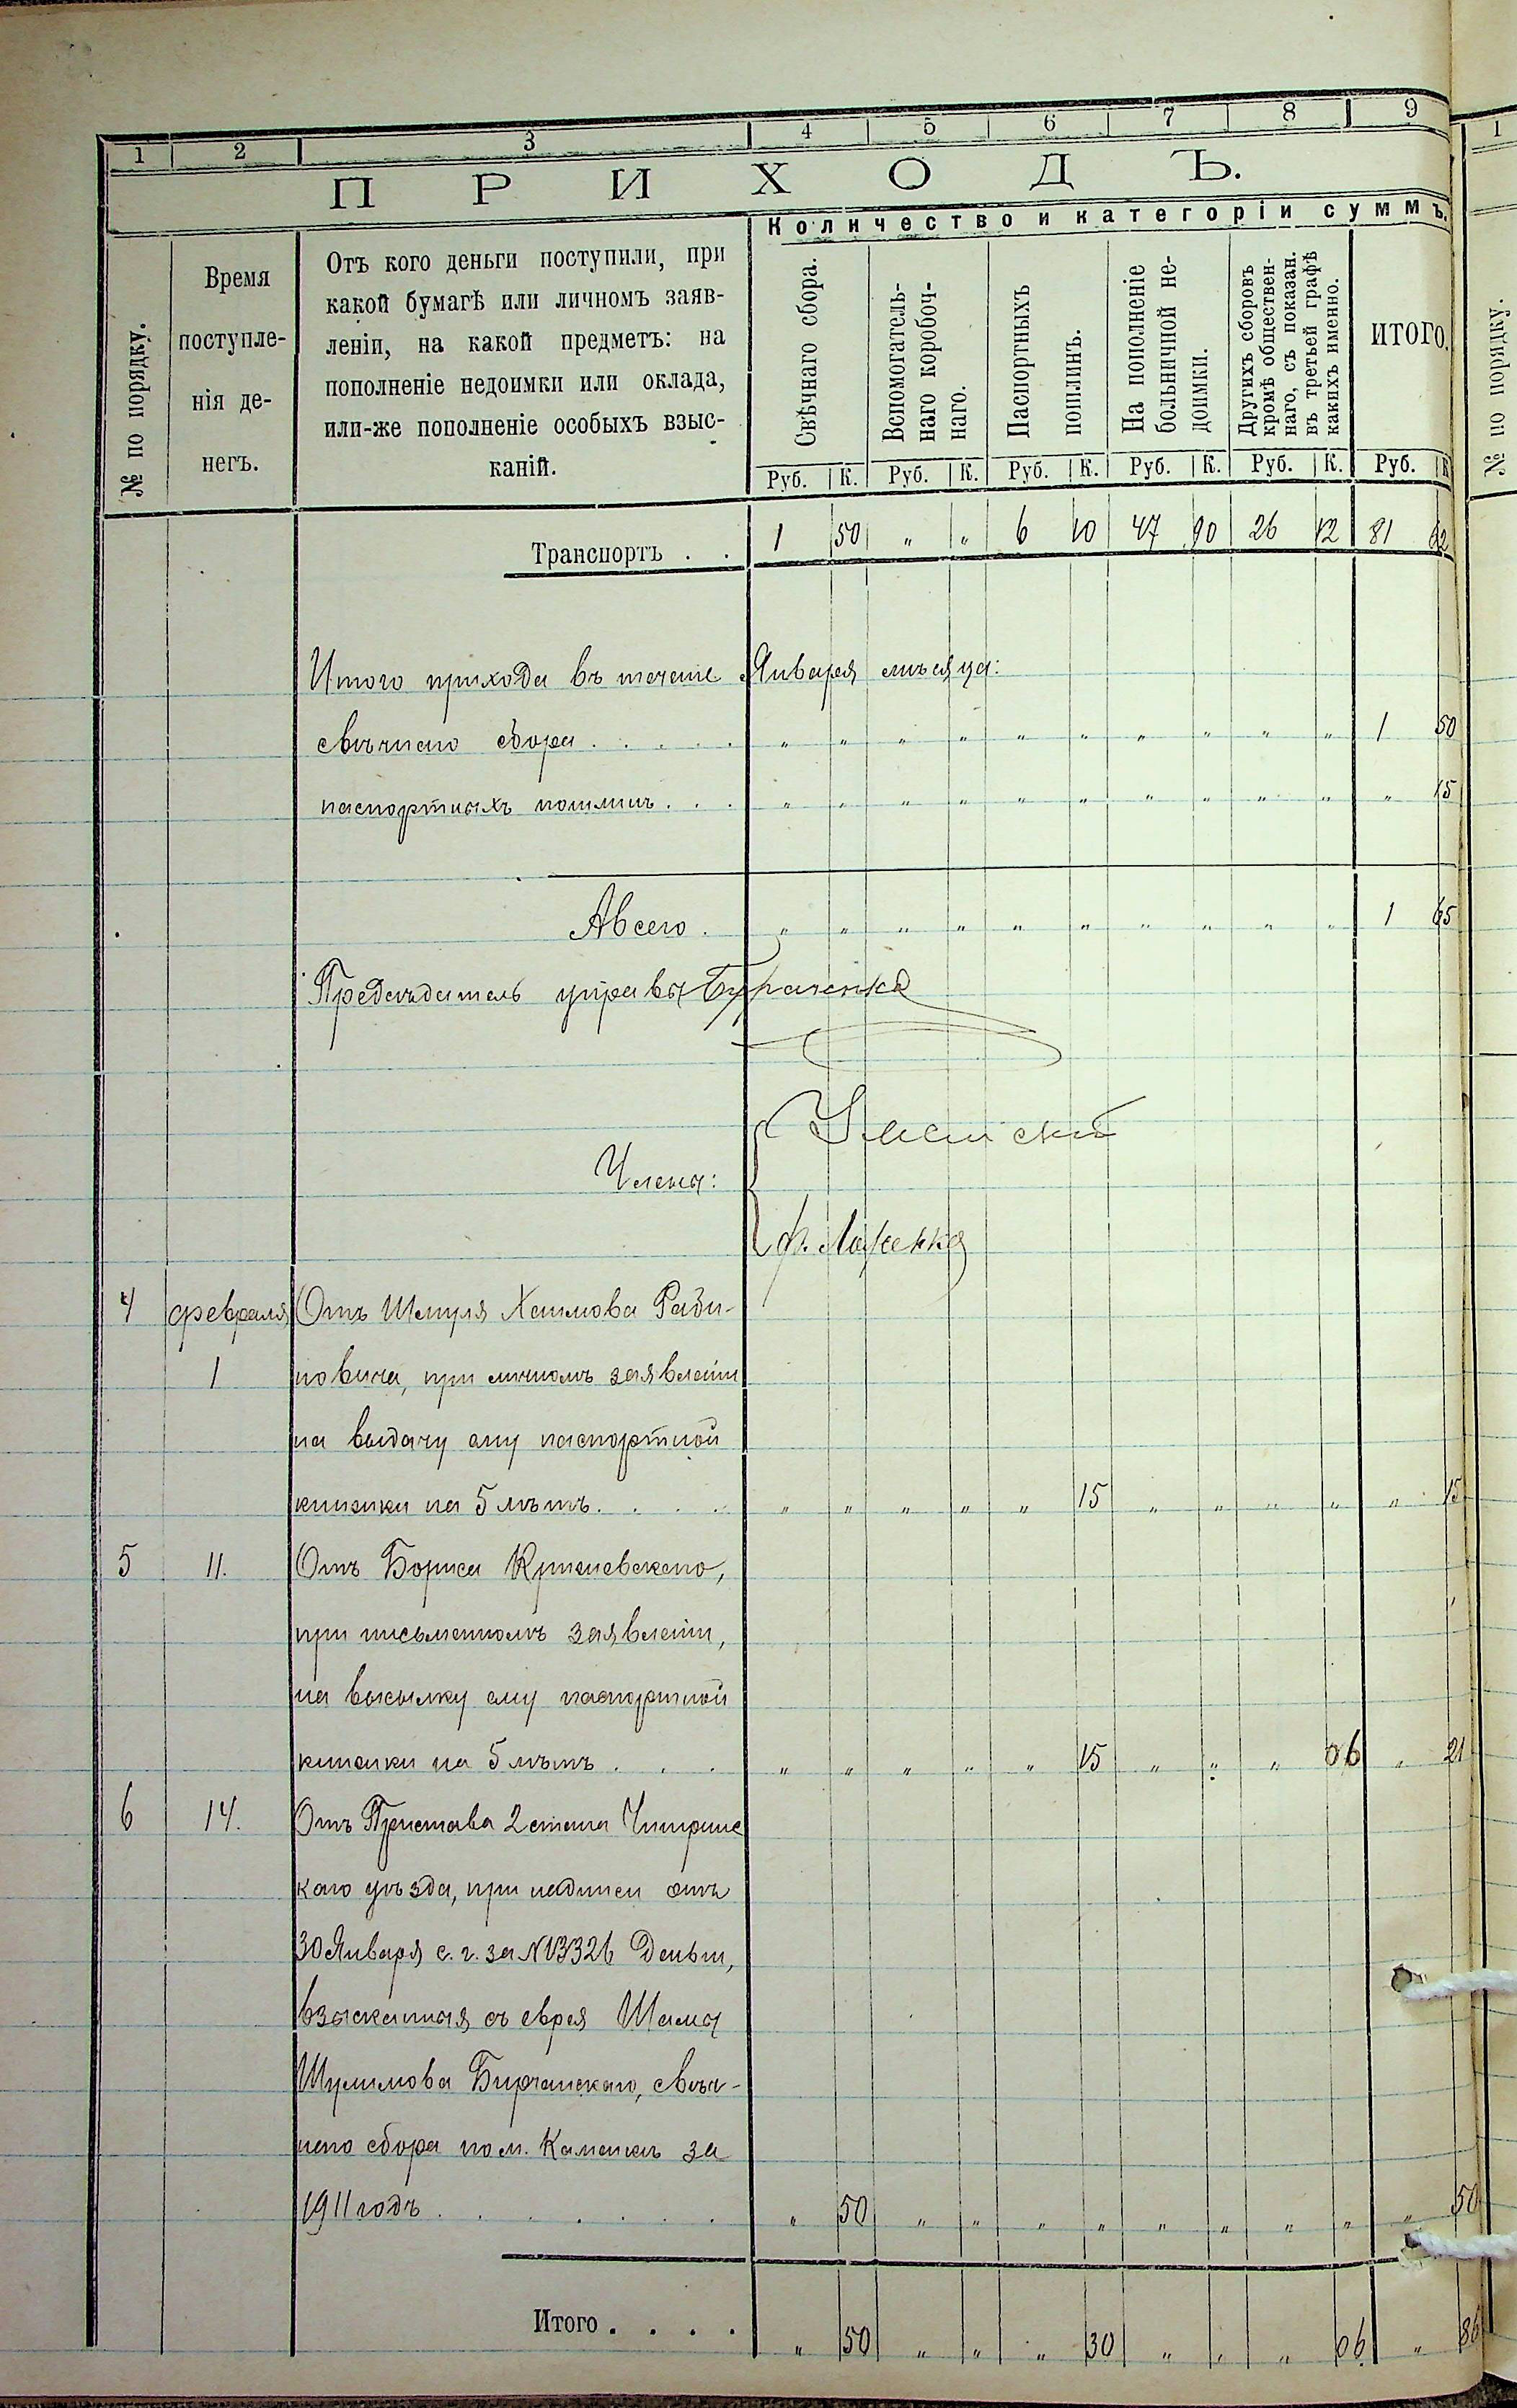 1 2 3 4 5 6 7 8 9
ПРИХОДЪ.
Количество и категоріи суммъ.
№ по порядку.
Время
поступле-
нія де-
негъ.
Отъ кого деньги поступили, при
какой бумагѣ или личномъ заяв-
леніи, на какой предметъ: на
пополненіе недоимки или оклада,
или-же пополненіе особыхъ взыс-
каній.
Свѣчнаго сбора.
Вспомогатель-
наго коробоч-
наго.
Паспортныхъ
пошлинъ.
На пополненіе
больничной не-
доимки.
Другихъ сборовъ
кромѣ обществен-
наго, съ показан.
въ третьей графѣ
какихъ именно.
ИТОГО.
Руб. К. Руб. К. Руб. К. Руб. К. Руб. К. Руб. К
Транспортъ . . 1 50 " " 6 10 47 90 26 12 81 62
Итого прихода въ теченіе Января мѣсяца:
свѣчнаго сбора . . . . . " " " " " " " " " " 1 50
паспортныхъ пошлинъ . . . " " " " " " " " " " " 15
А всего . " " " " " " " " " " 1 65
Предсѣдатель управы
Члены:
4 февраля Отъ Шмуля Хаимова Раби-
1 новича, при личномъ заявленіи
на выдачу ему паспортной
книжки на 5 лѣтъ . . . . " " " " " 15 " " " " " 15
5 11. Отъ Бориса Кричевскаго,
при письменномъ заявленіи,
на высылку ему паспортной
книжки на 5 лѣтъ . . . " " " " " 15 " " " 06 " 21
6 14. Отъ Пристава 2 стана Чигринс
каго уѣзда, при надписи отъ
30 Января с. г. за № 13326 деньги,
взысканныя съ еврея
Шулимова Бирчанскаго, свѣч-
наго сбора по м. Каменкѣ за
1911 годъ . . . . . . . " 50 " " " " " " " " " 50
Итого . . . . " 50 " " " 30 " " " 06 " 86
1
№ по порядку.